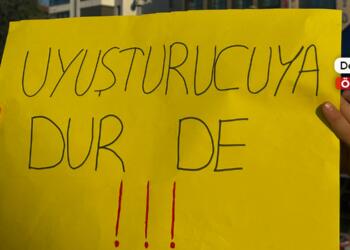 UYUŞTURUCUYA
DUR DE
!!!